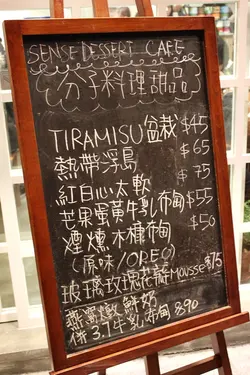 SENSE DESSERT CAFE
分子料理甜品
TIRAMISU盆栽 $45
熱帶浮島 $65
紅白心太軟 $75
芒果蛋黃牛乳布甸 $55
煙燻木糠布甸 $50
(原味/OREO)
玻璃玫瑰花蔚MOUSSE $75
燕窩燉鮮奶
併3.7牛乳布甸 $90